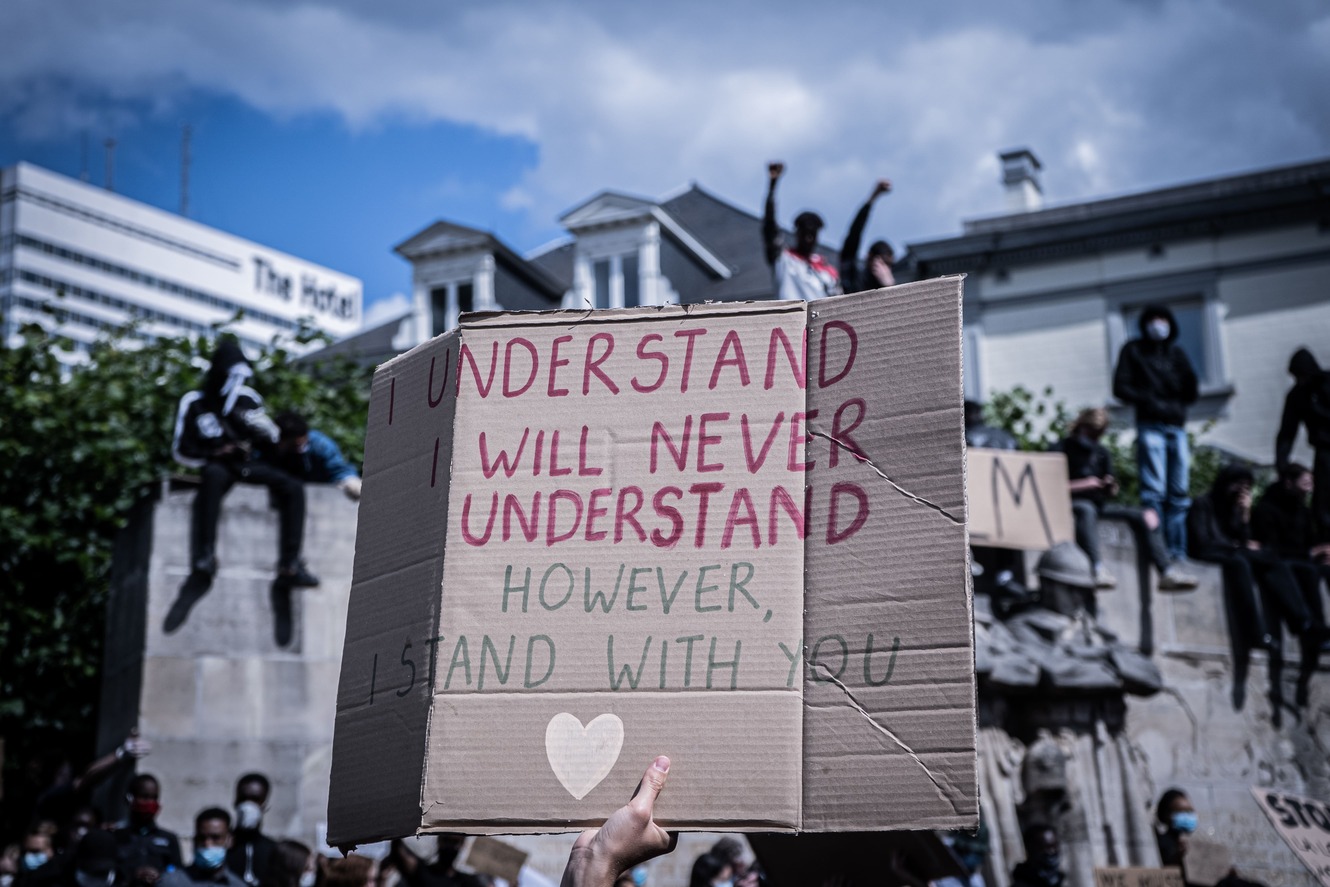 The Hotel
I UNDERSTAND
I WILL NEVER
UNDERSTAND
HOWEVER,
I STAND WITH YOU
M
STOP